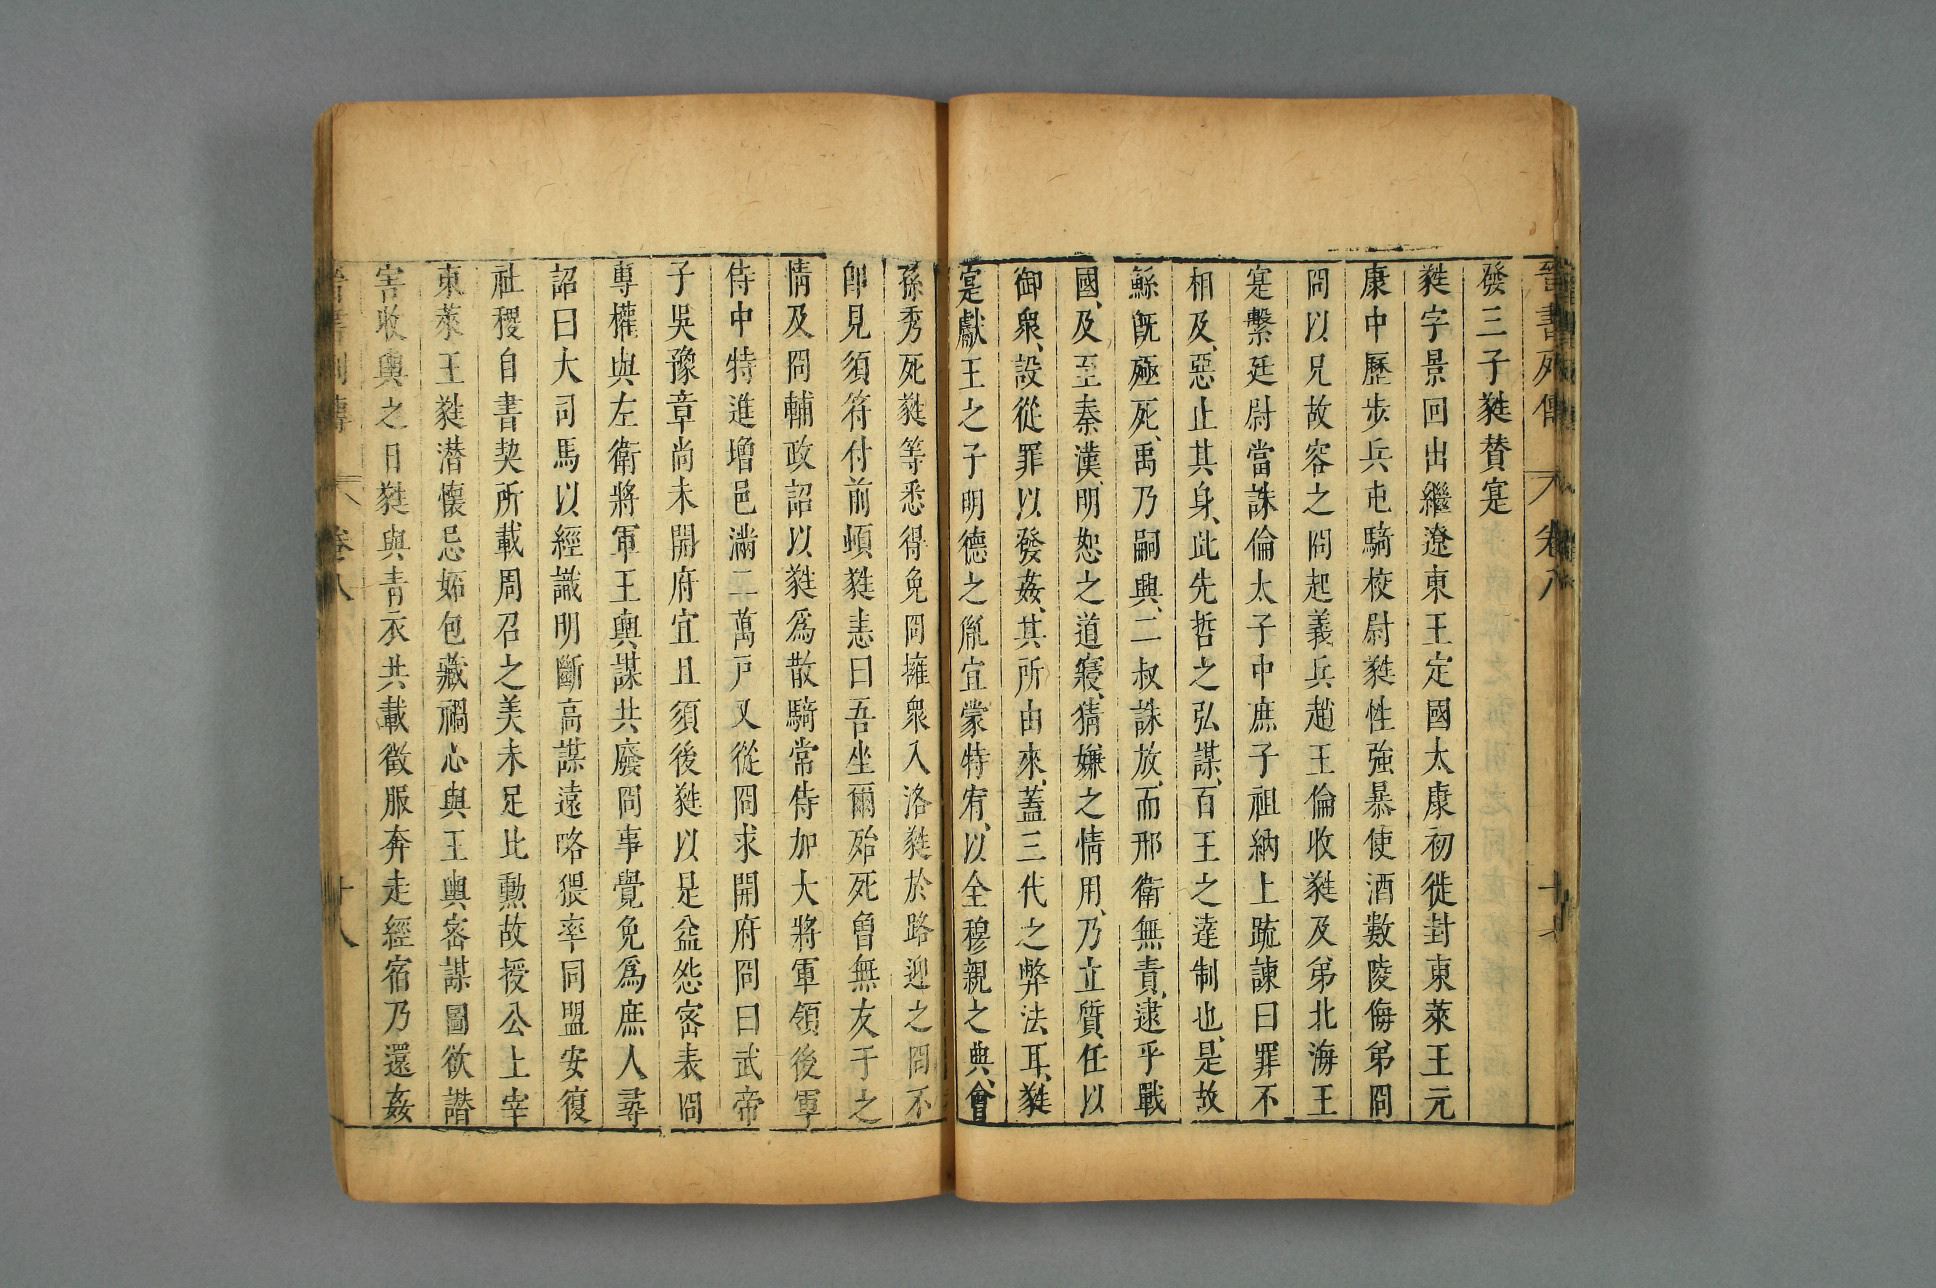 晉書列傳 卷八 十七
發三子蕤贊寔
蕤字景回出繼遼東王定國太康初徙封東萊王元
康中歷步兵屯騎校尉蕤性強暴使酒數陵侮弟冏
冏以兄故容之冏起義兵趙王倫收蕤及弟北海王
寔繫廷尉當誅倫太子中庶子祖納上䟽諫曰罪不
相及、惡止其身、此先哲之弘謀、百王之達制也、是故
鯀旣殛死、禹乃嗣興、二叔誅放、而邢衛無責、逮乎戰
國、及至秦漢、明恕之道寢、猜嫌之情用、乃立質任以
御衆、設從罪以發姦、其所由來、蓋三代之弊法耳、蕤
寔獻王之子明德之胤宜蒙特宥、以全穆親之典、會
孫秀死蕤等悉得免冏擁衆入洛蕤於路迎之冏不
卽見須符付前頓蕤恚曰吾坐爾殆死曾無友于之
情及冏輔政詔以蕤爲散騎常侍加大將軍領後軍
侍中特進增邑滿二萬戸又從冏求開府冏曰武帝
子吳豫章尚未開府宜且須後蕤以是益怨密表冏
專權與左衛將軍王輿謀共廢冏事覺免爲庶人尋
詔曰大司馬以經識明斷高謀遠略猥率同盟安復
社稷自書契所載周召之美未足比勳故授公上宰
東萊王蕤潛懷忌妬包藏禍心與王輿密謀圖欲譖
害收輿之日蕤與靑衣共載微服奔走經宿乃還姦
晉書列傳 卷八 十八